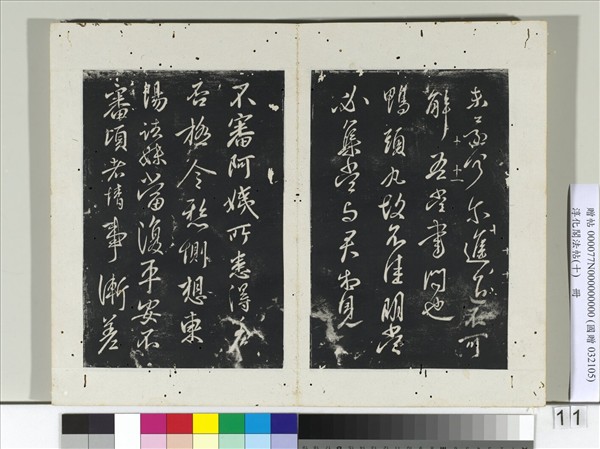 尔進退不可
解吾當書問也
鴨頭丸故不佳明當
必集當与君相見
不審阿姨所患得差
否極令懸惻想東
陽諸妹當復平安不
審頃者情事漸差
贈帖 000077N000000000 (國贈 032105)
淳化閣法帖(十) 冊
11